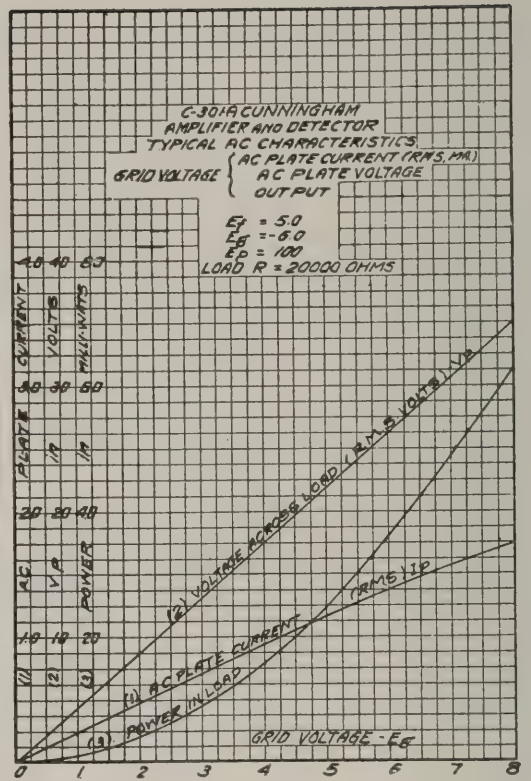 C-301-A CUNNINGHAM
AMPLIFIER AND DETECTOR
TYPICAL AC CHARACTERISTICS
GRID VOLTAGE { AC PLATE CURRENT (RMS, MA.)
AC PLATE VOLTAGE
OUTPUT
Ef = 5.0
Eg = -6.0
Ep = 100
LOAD R = 20000 OHMS
4.0 40 80
3.0 30 60
2.0 20 40
1.0 10 20
(1) AC. PLATE CURRENT
(2) VP in VOLTS
(3) POWER in MILLI-WATTS
(2) VOLTAGE ACROSS LOAD (R.M.S. VOLTS) VP
(1) AC PLATE CURRENT (RMS) IP
(3) POWER IN LOAD
GRID VOLTAGE - EG
0 1 2 3 4 5 6 7 8